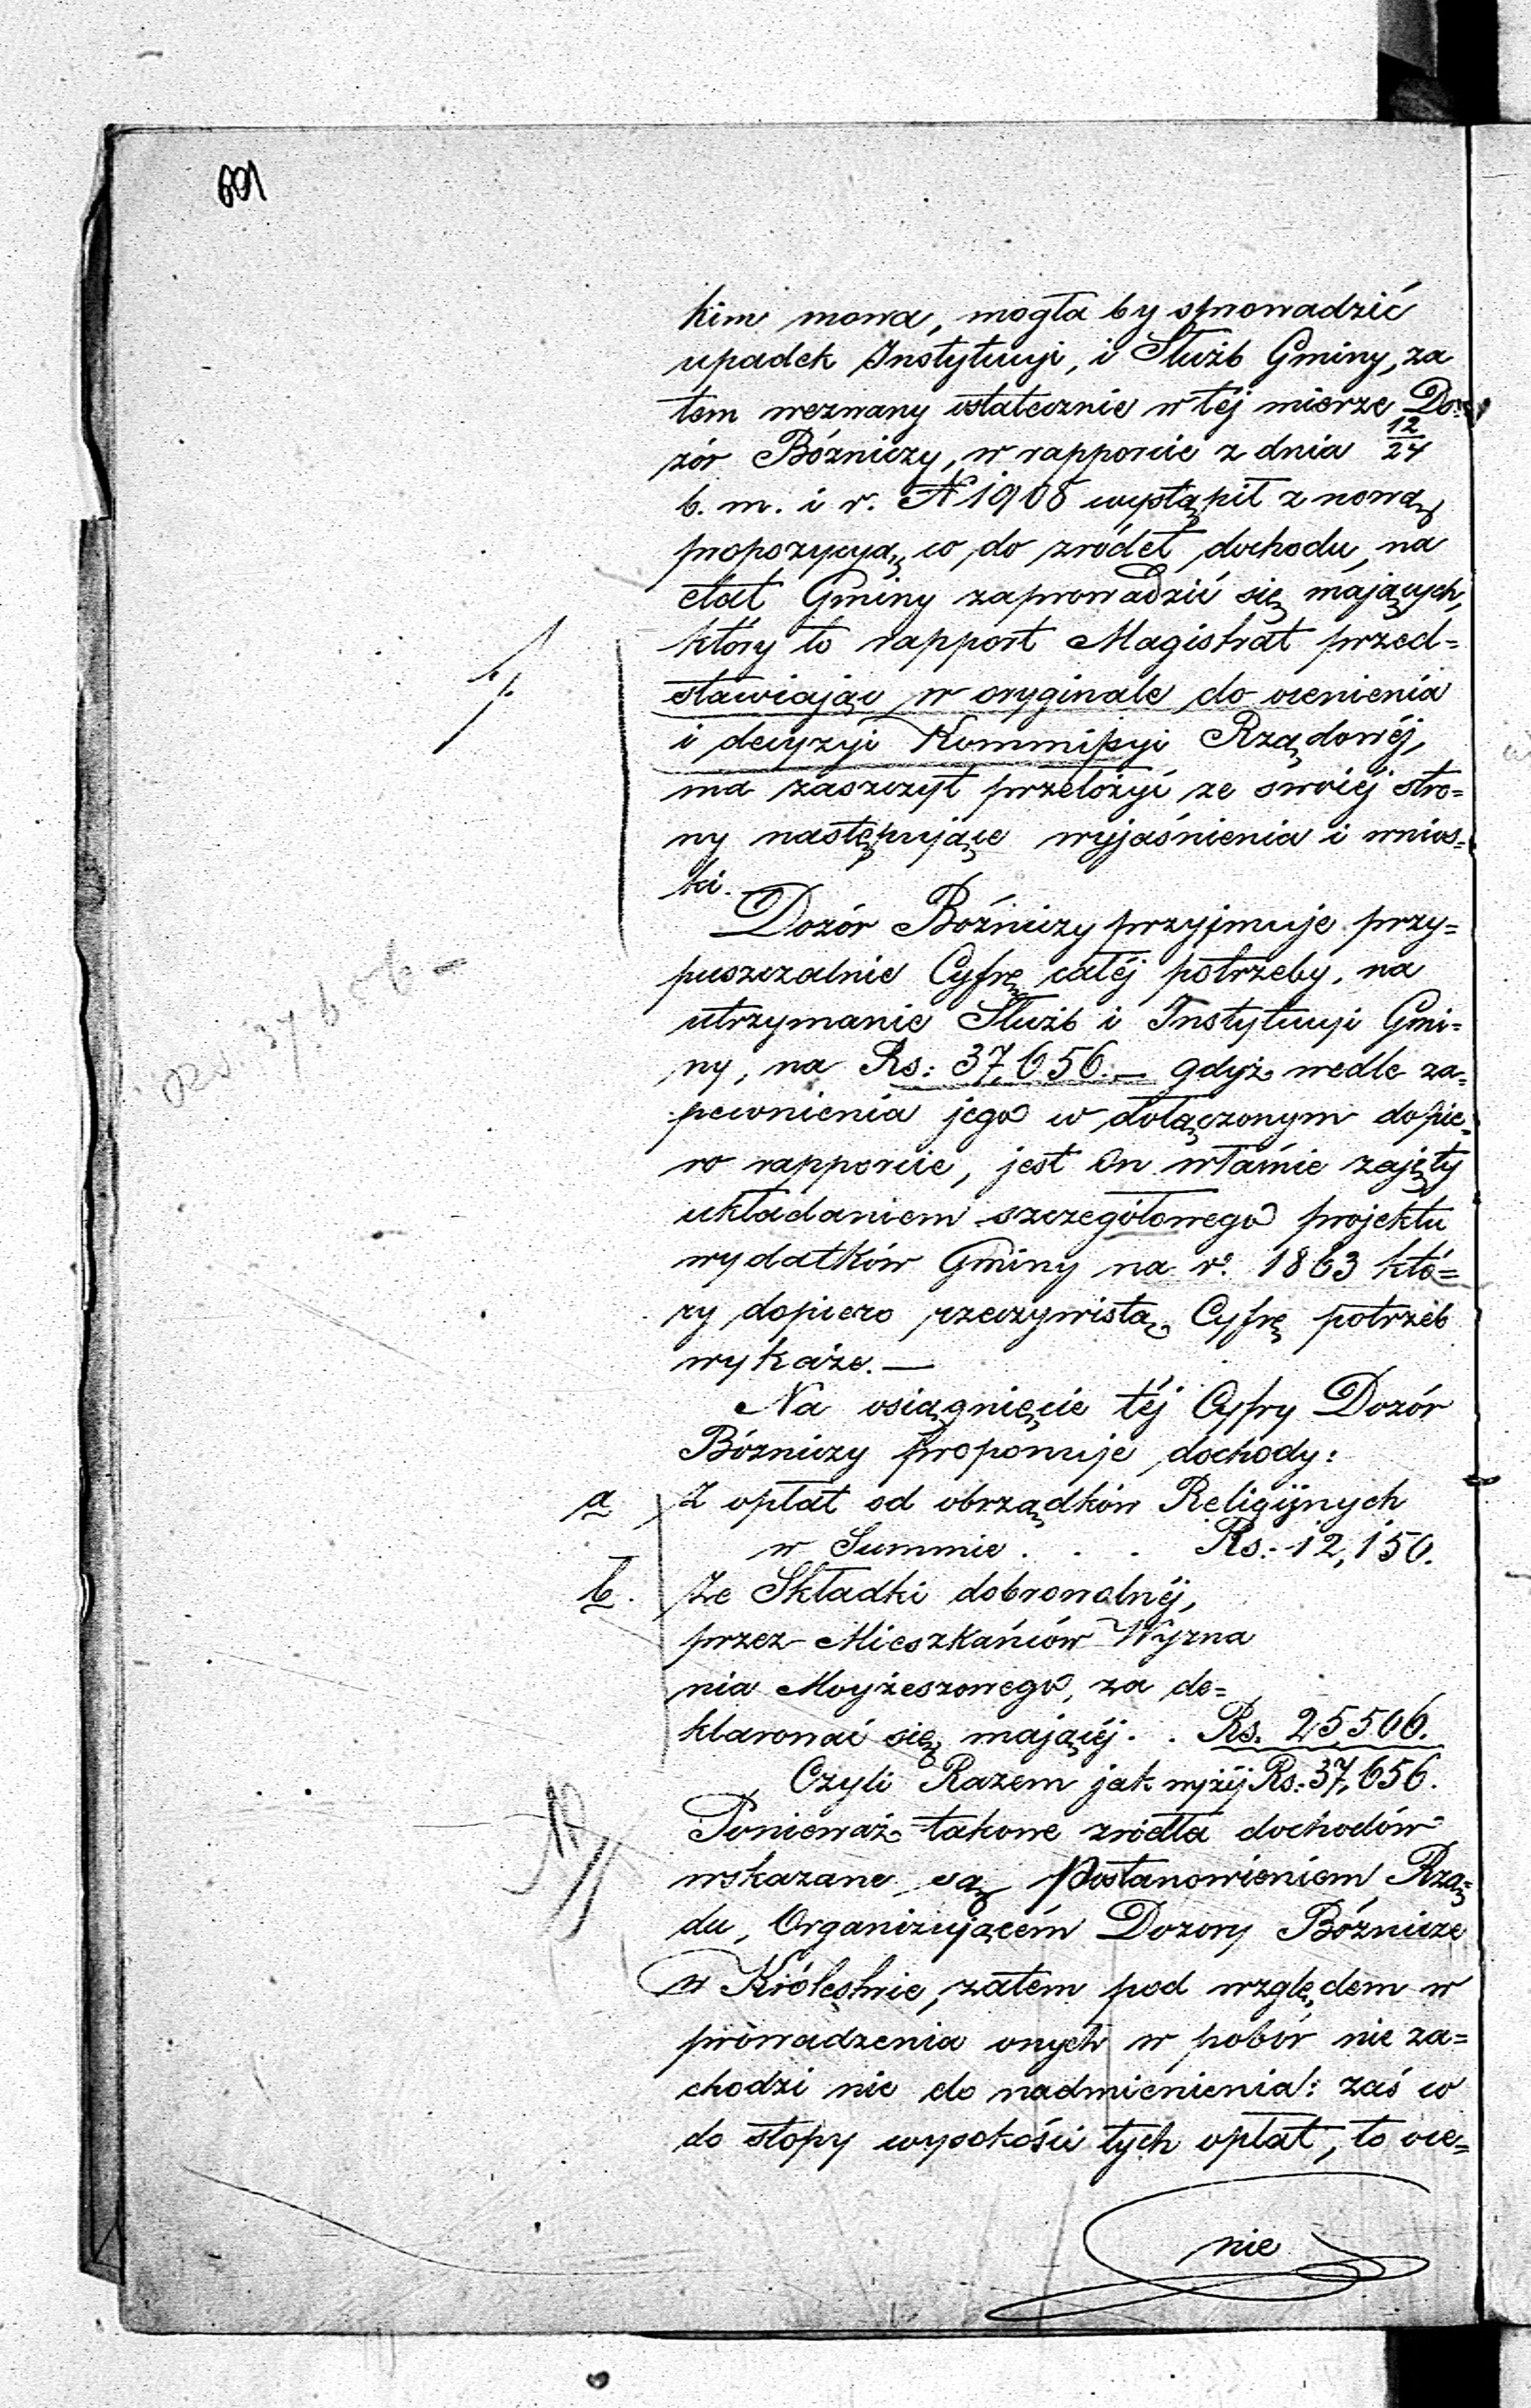 601
kim mowa, mogła by sprowadzić
upadek Instytucyi, i Służb Gminy, za
tem wezwany ostatecznie w téj mierze Do=
zór Bóźniczy, w rapporcie z dnia 12/24
b. m. i r. N 1908 wystąpił z nową
propozycyą, co do źródeł dochodu, na
etat Gminy zaprowadzić się mających,
który to rapport Magistrat przed=
stawiając w oryginale do ocenienia
i decyzyi Kommissyi Rządowéj,
ma zaszczyt przełożyć ze swéj stro=
ny następujące wyjaśnienia i wnios=
ki.
Dozór Bóźniczy przyjmuje przy=
puszczalnie Cyfrę całéj potrzeby, na
utrzymanie Służb i Instytucyi Gmi=
ny, na Rs: 37,656.— gdyż wedle za=
pewnienia jego w dołączonym dopie=
ro rapporcie, jest On właśnie zajęty
układaniem szczegółowego projektu
wydatków Gminy na r. 1863 któ=
ry dopiero rzeczywistą Cyfrę potrzeb
wykaże.—
Na osiągnięcie téj Cyfry Dozór
Bóźniczy proponuje dochody:
a Z opłat od obrządków Religijnych
w Summie . . . Rs: 12,150.
b. Ze Składki dobrowolnéj,
przez Mieszkańców Wyzna
nia Mojżeszowego, za de=
klarować się mającéj . . Rs. 25,506.
Czyli Razem jak wyżéj Rs: 37,656.
Ponieważ takowe źródła dochodów
wskazane są Postanowieniem Rzą=
du, Organizującém Dozory Bóźnicze
w Królestwie, zatem pod względem w
prowadzenia onych w pobór nie za=
chodzi nic do nadmienienia: zaś co
do stopy wysokości tych opłat, to oce=
nie
Rs. 37,656 —